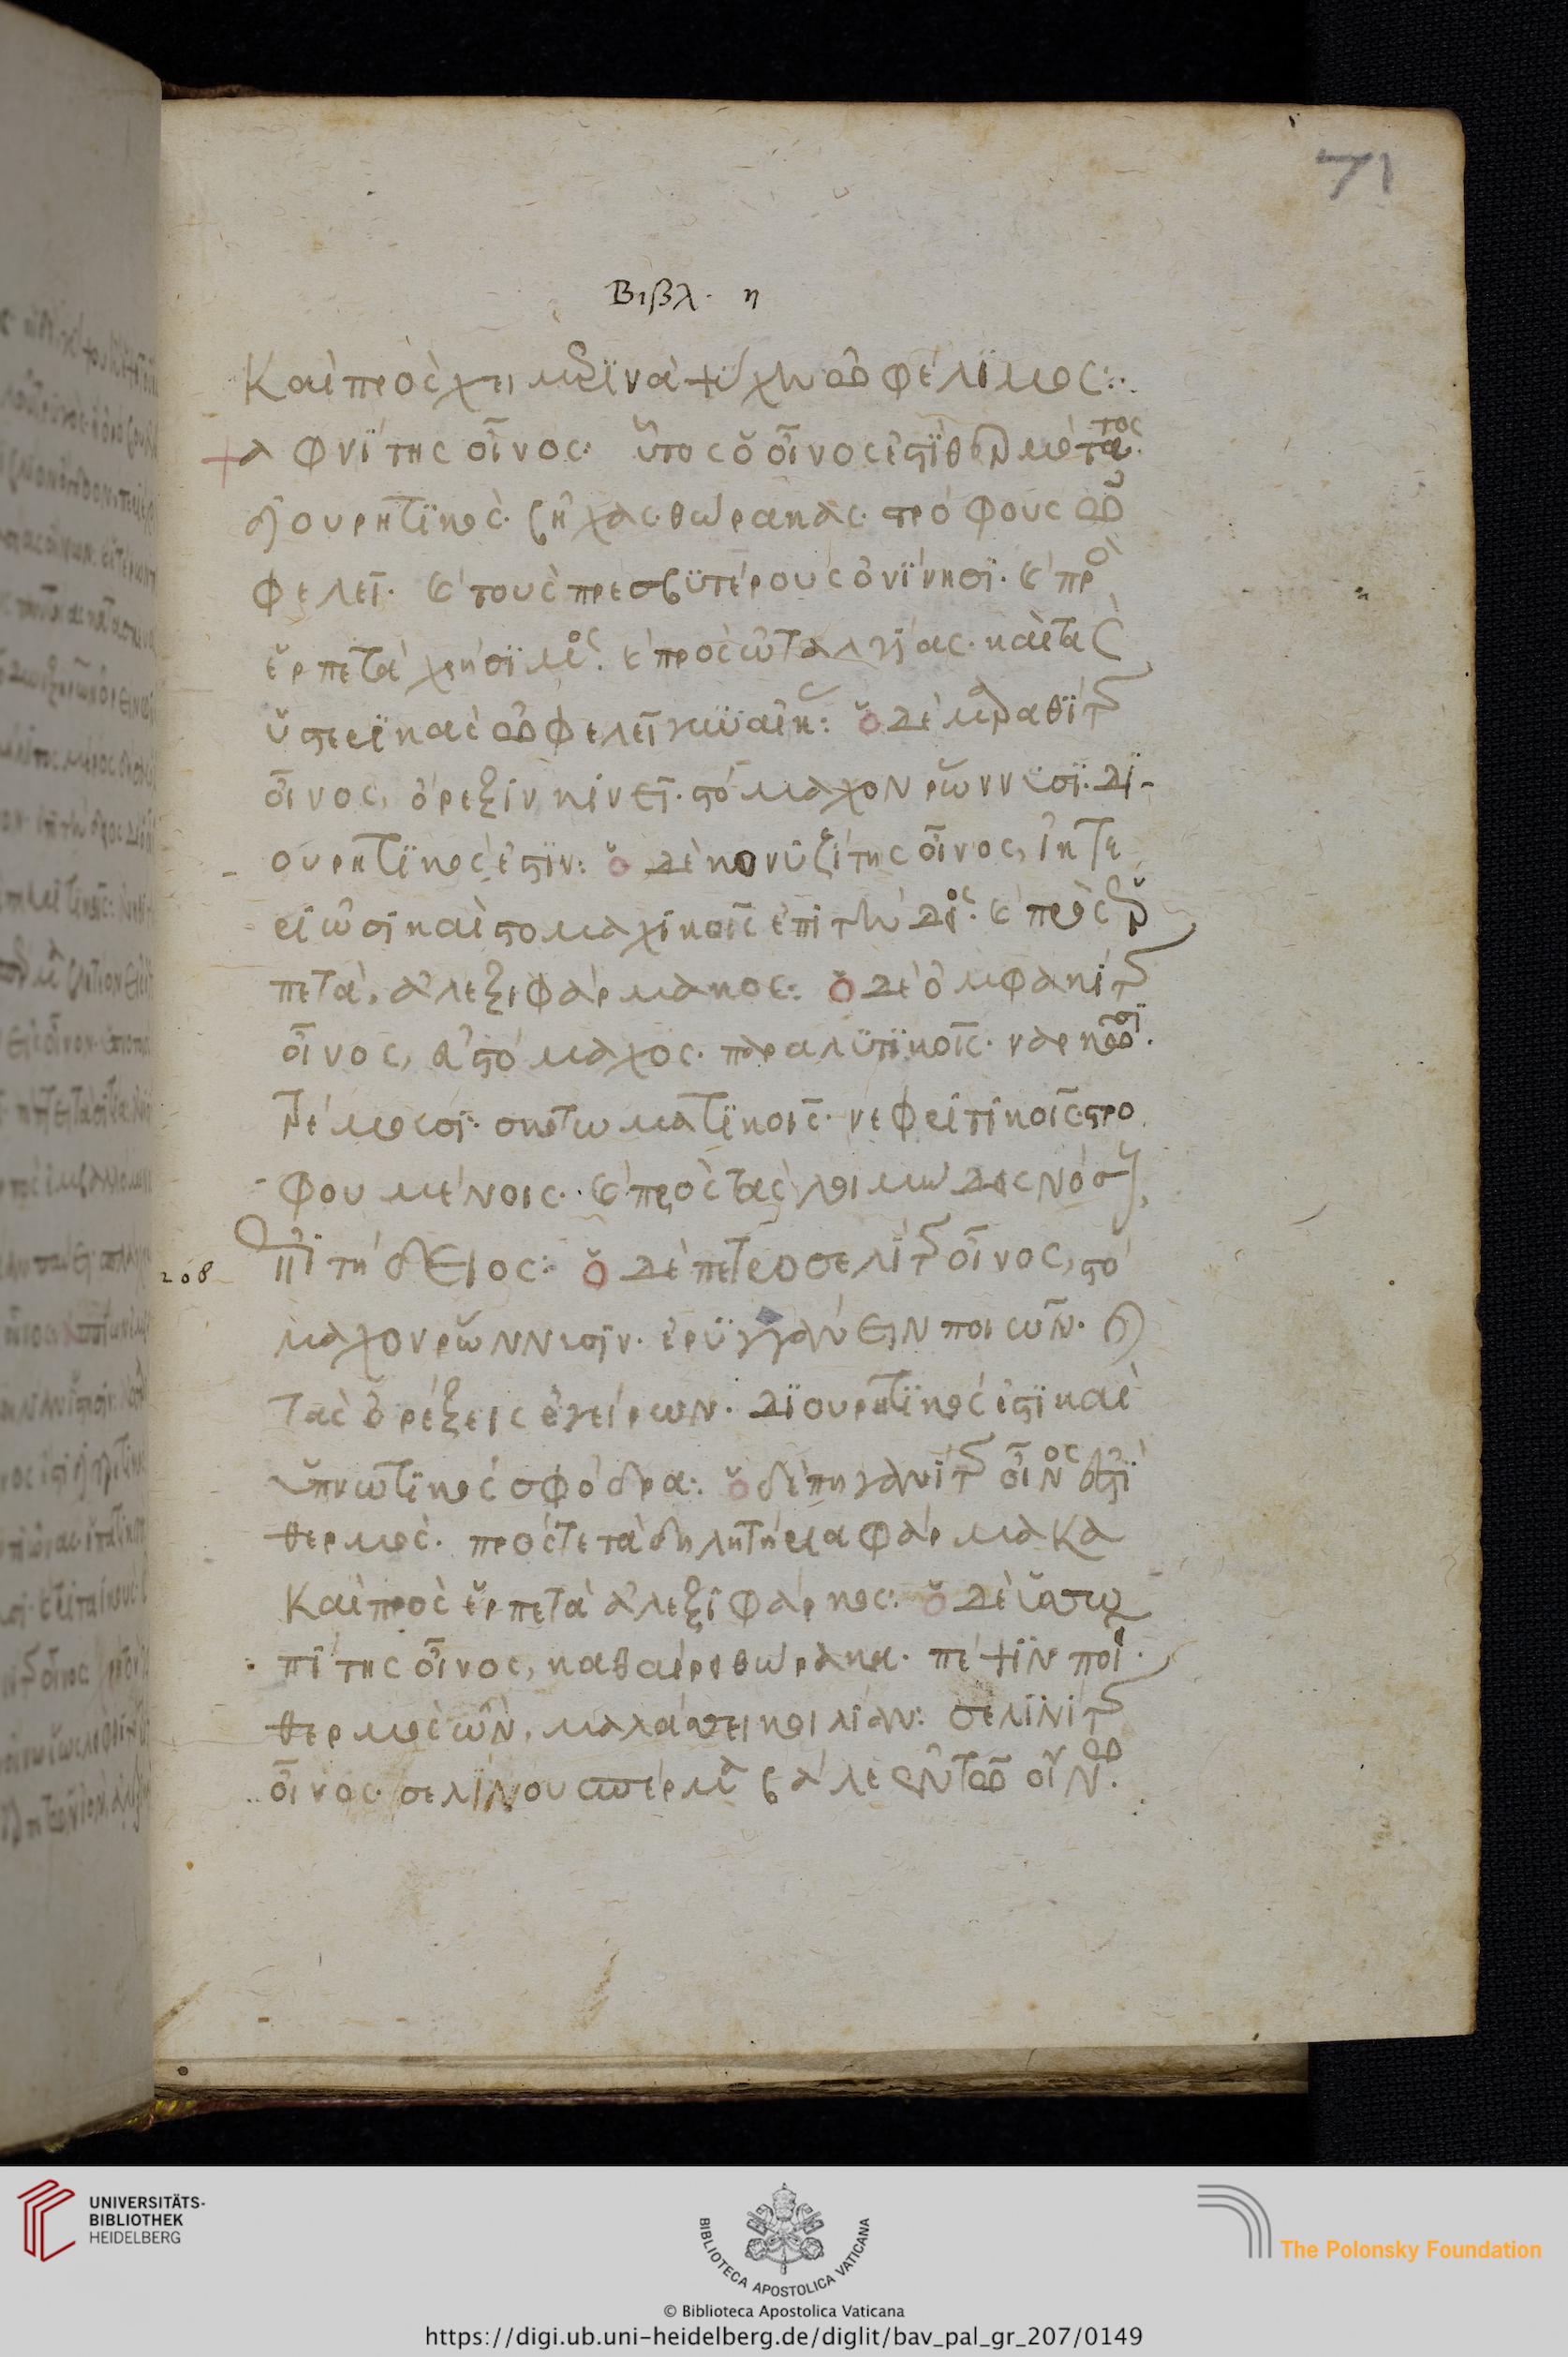 71
Βιβλ. η
Καὶ πρὸς χειμεϊνὰ ψύχη ὠφέλϊμος:·
δαφνΐτης οἶνος. ὗτος ὁ οἶνος ἐστϊ θερμότατος
διουρητϊκὸς. βῆχας. θώρακας. στρόφους ὠ
φελεῖ. καὶ τοὺς πρεσβϋτέρους ὀνΐνησϊ. καὶ πρὸς
ἑρπετὰ χρήσϊμος. καὶ πρὸς ὠταλγίας. καὶ τὰς
ὑστερϊκὰς ὠφελεῖ γυναῖκας: ὁ δὲ μαραθΐτης
οἶνος, ὄρεξιν κινεῖ. στόμαχον ῥώννυσϊ. δϊ-
ουρητϊκὸς ἐστϊν: ὁ δὲ κονυζίτης οἶνος, ἰκτε
ριῶσι καὶ στομαχικοῖς ἐπιτήδιος. καὶ πρὸς ἑρ
πετὰ, ἀλεξιφάρμακος: ὁ δὲ ὀμφακίτης
οἶνος, εὐστόμαχος. παραλϋτϊκοῖς. νάρκωσϊ.
τρέμουσι. σκοτωματϊκοις. νεφριτικοῖς. στρο
φουμένοις. καὶ πρὸς τὰς λοιμώδας νόσους
ἐπιτήδειος: ὁ δὲ πετροσελίτης οἶνος, στό
208
μαχον ῥώννυσϊν. ἐρϋγγάνειν ποιῶν. καὶ
τὰς ὀρέξεις ἐγείρων. δϊουρητϊκὸς ἐστϊ καὶ
ὑπνωτϊκὸς σφόδρα: ὁ δὲ πηγανίτης οἶνος ἐστϊ
θερμὸς. πρὸς τε τὰ δηλητήρια φάρμακα
Καὶ πρὸς ἑρπετὰ ἀλεξιφάρκος: ὁ δὲ ὑσσω
πίτης οἶνος, καθαίρει θώρακα. πέψϊν ποιεῖ.
θερμὸς ὢν, μαλάσσει κοιλίαν: σελϊνίτης
οἶνος. σελίνου σπέρμα βάλε ἐν τῶ οἴνω.
UNIVERSITÄTS-
BIBLIOTHEK
HEIDELBERG
BIBLIOTECA APOSTOLICA VATICANA
The Polonsky Foundation
© Biblioteca Apostolica Vaticana
https://digi.ub.uni-heidelberg.de/diglit/bav_pal_gr_207/0149